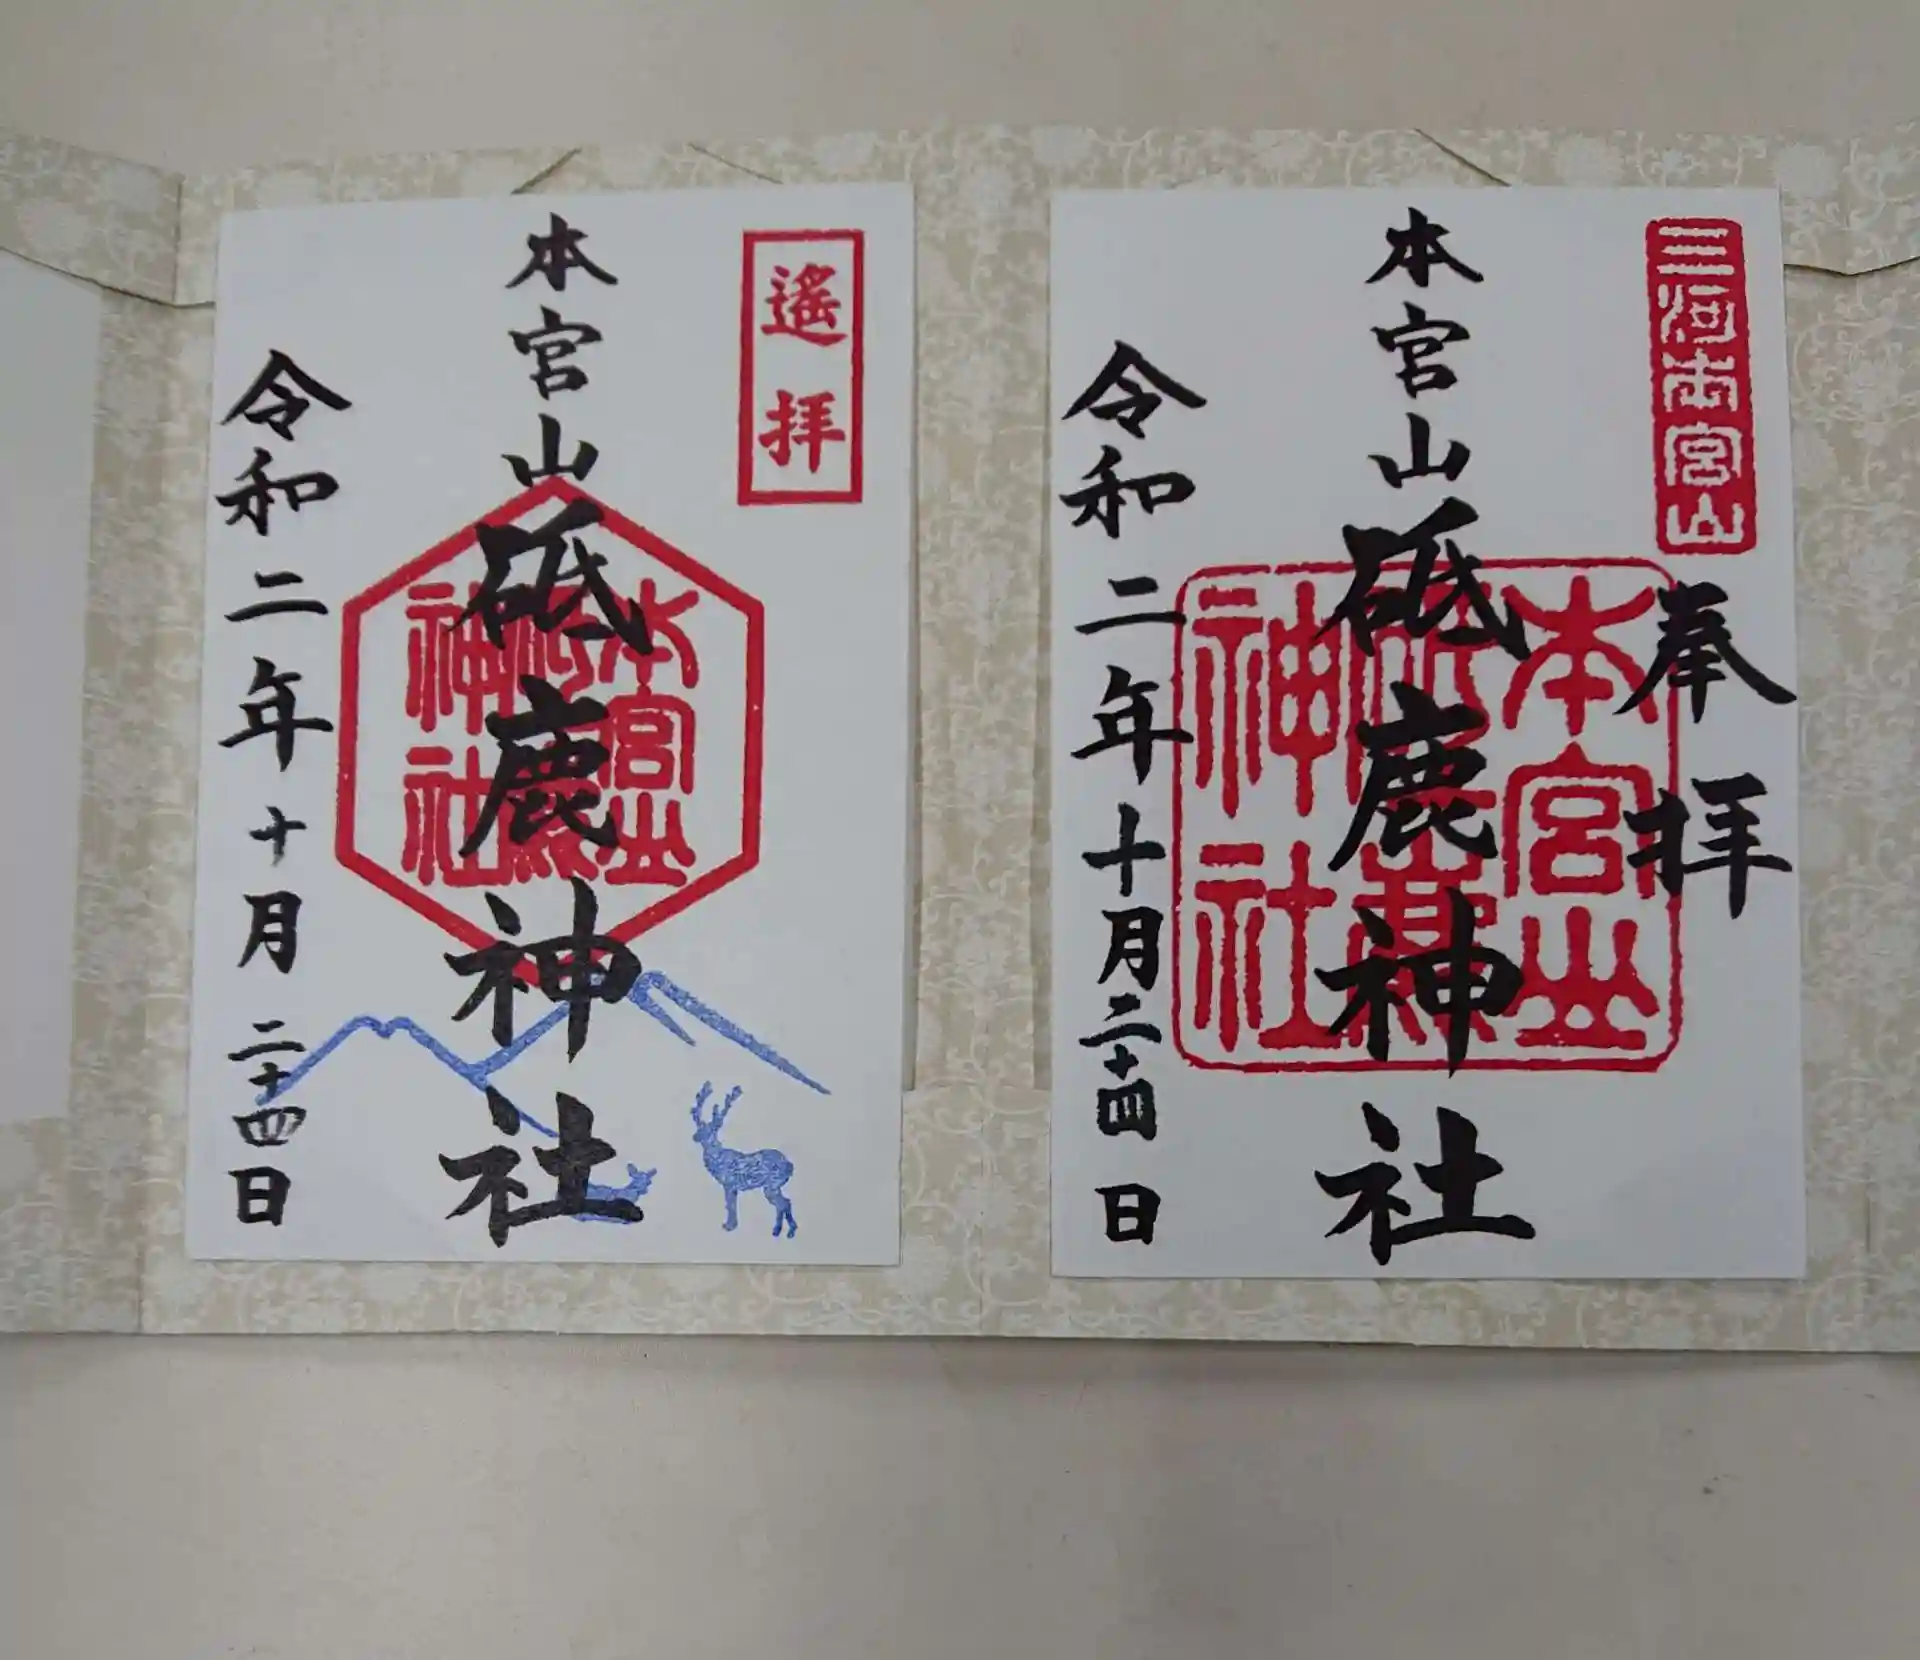 三河本宮山
奉拝
本宮山
砥鹿神社
本宮山
砥鹿
神社
令和二年十月二十四日
遙拝
本宮山
砥鹿神社
本宮山
砥鹿
神社
令和二年十月二十四日